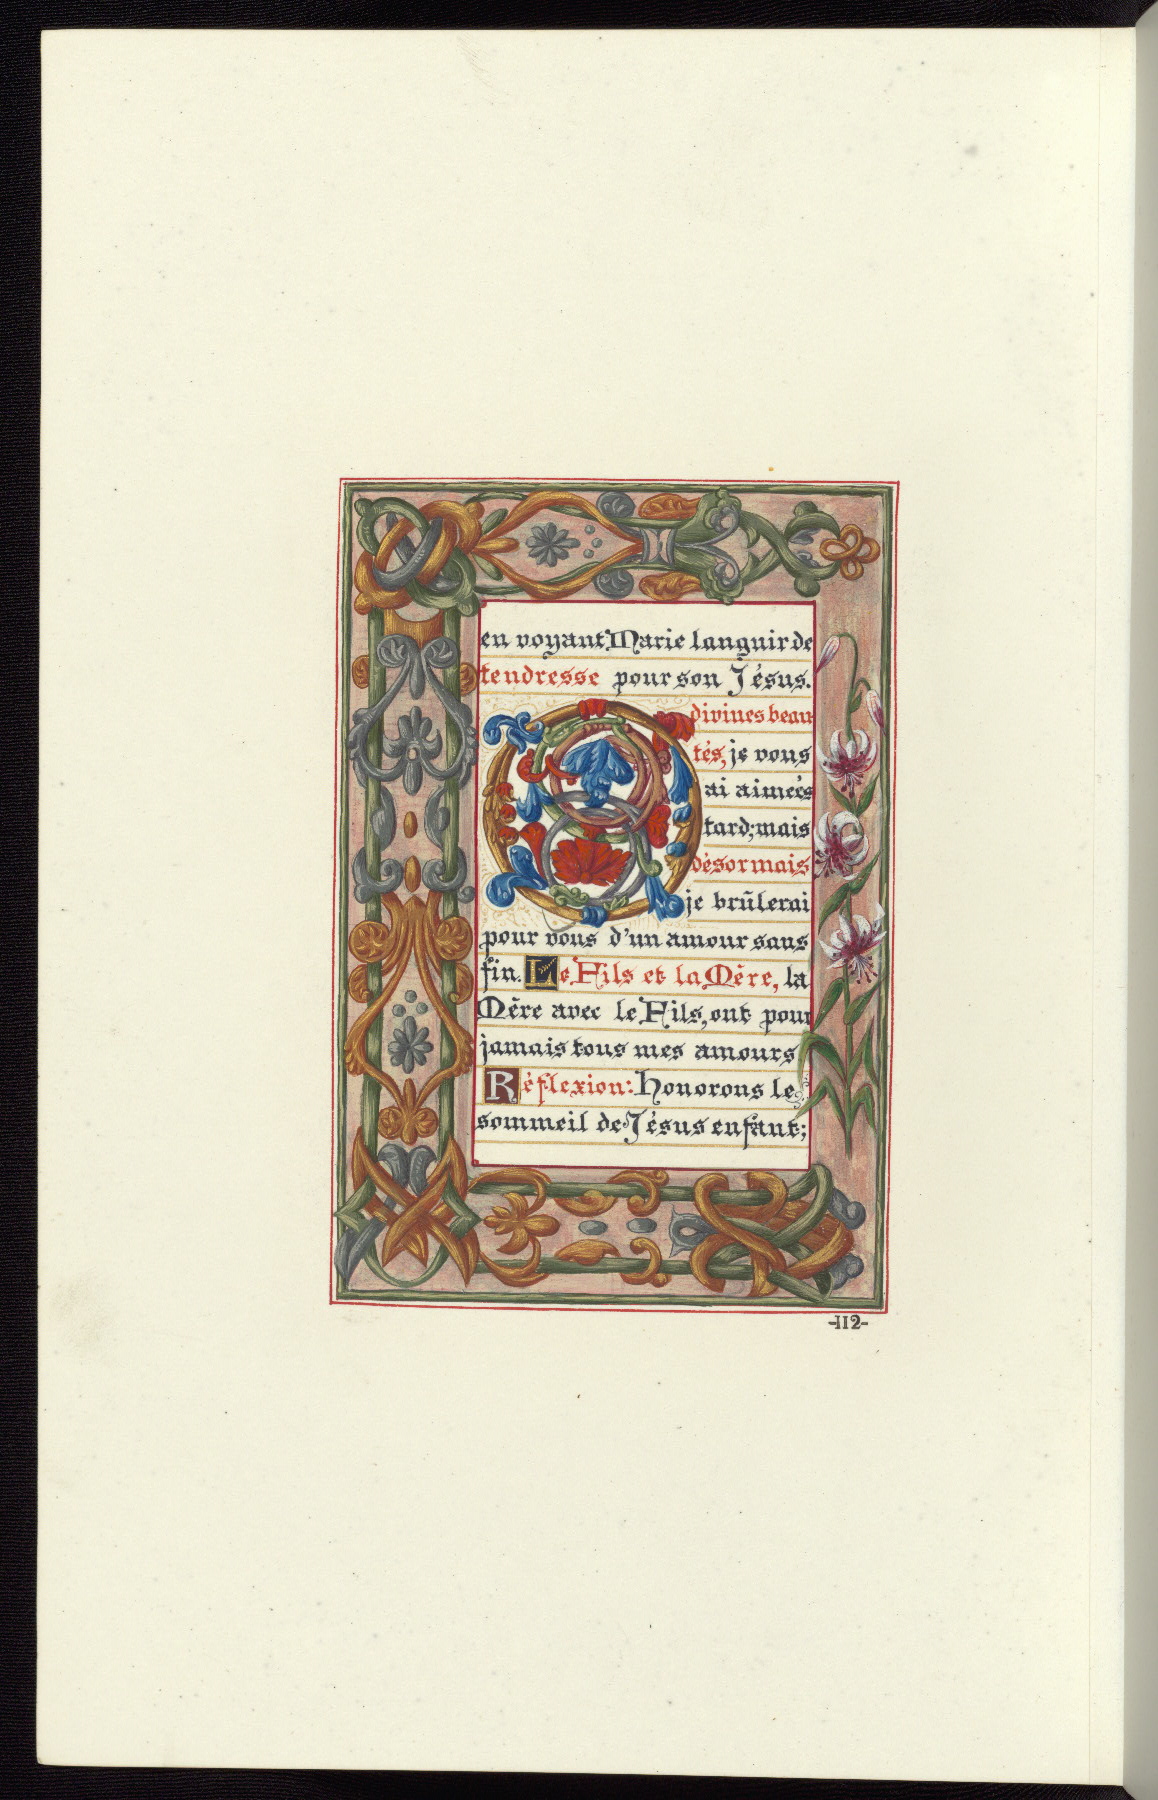 en voyant Marie languir de
tendresse pour son Jésus.
O divines beau
tés, je vous
ai aimées
tard; mais
désormais
je brûlerai
pour vous d'un amour sans
fin. Le Fils et la Mère, la
Mère avec le Fils, ont pour
jamais tous mes amours
Réflexion: Honorons le
sommeil de Jésus enfant;
-112-